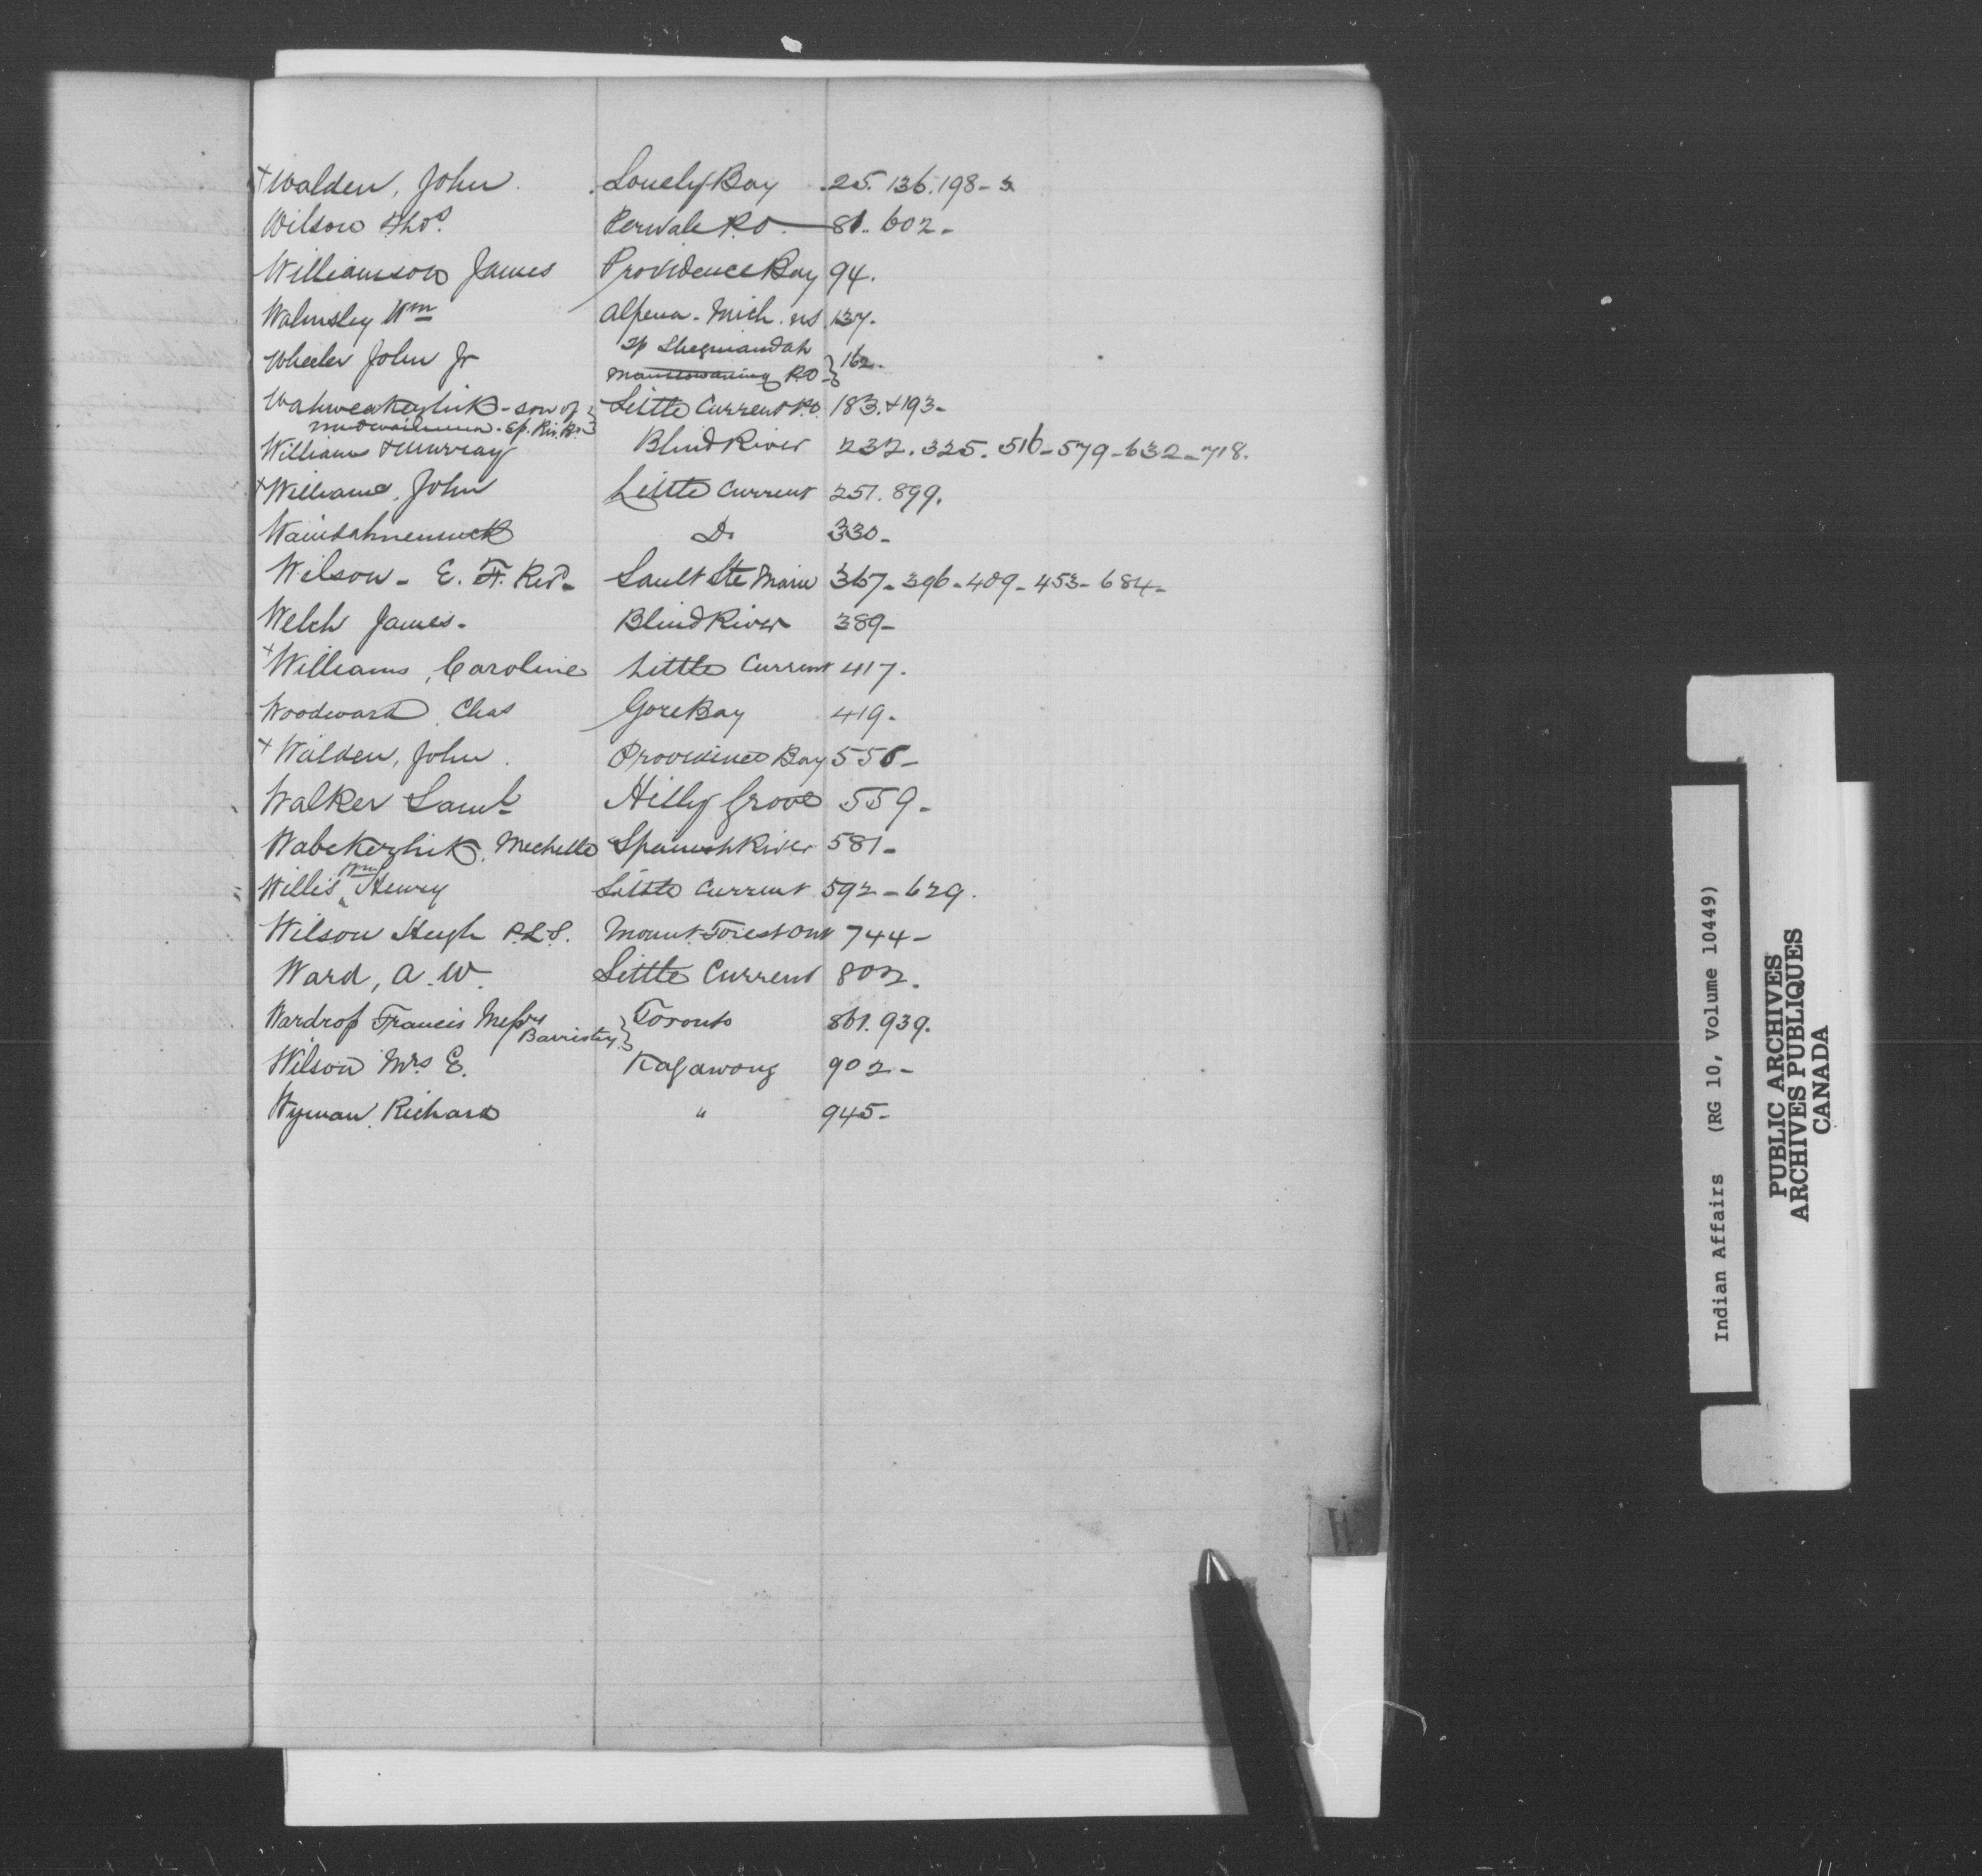 + Walden, John. Lonely Bay 25. 136. 198 - 3
Wilson Thos. Perivale P.O. — 81. 602 -
Williamson James Providence Bay 94.
Walmsley Wm Alpena. Mich. US 137.
Tp Shequiandah
Wheeler John Jr Manitowaning P.O } 162.
Wahweakezhik - son of } Little Current P.O. 183. + 193 -
Sp. Riv. Bd
Williams & Murray Blind River 232. 325. 516 - 579 - 632 - 718.
+ Williams, John Little Current 251. 899.
Do 330 -
Wilson - E. F. Revd - Sault Ste Marie 367 - 396 - 409 - 453 - 684 -
Welch James - Blind River 389 -
+ Williams, Caroline Little Current 417.
Woodward, Chas Gore Bay 419.
+ Walden, John. Providence Bay 556 -
Walker Saml Hilly Grove 559 -
Wabekezhik, Michelle Spanish River 581 -
Willis Wm Henry Little Current 592 - 629.
Wilson Hugh P.L.S. Mount Forest Ont 744 -
Ward, A. W. Little Current 802.
Wardrop Francis Messrs } Toronto 861. 939.
Barristers
Wilson Mrs E. Kagawong 902 -
Wyman, Richard " 945 -
W
Indian Affairs (RG 10, Volume 10449)
PUBLIC ARCHIVES
ARCHIVES PUBLIQUES
CANADA